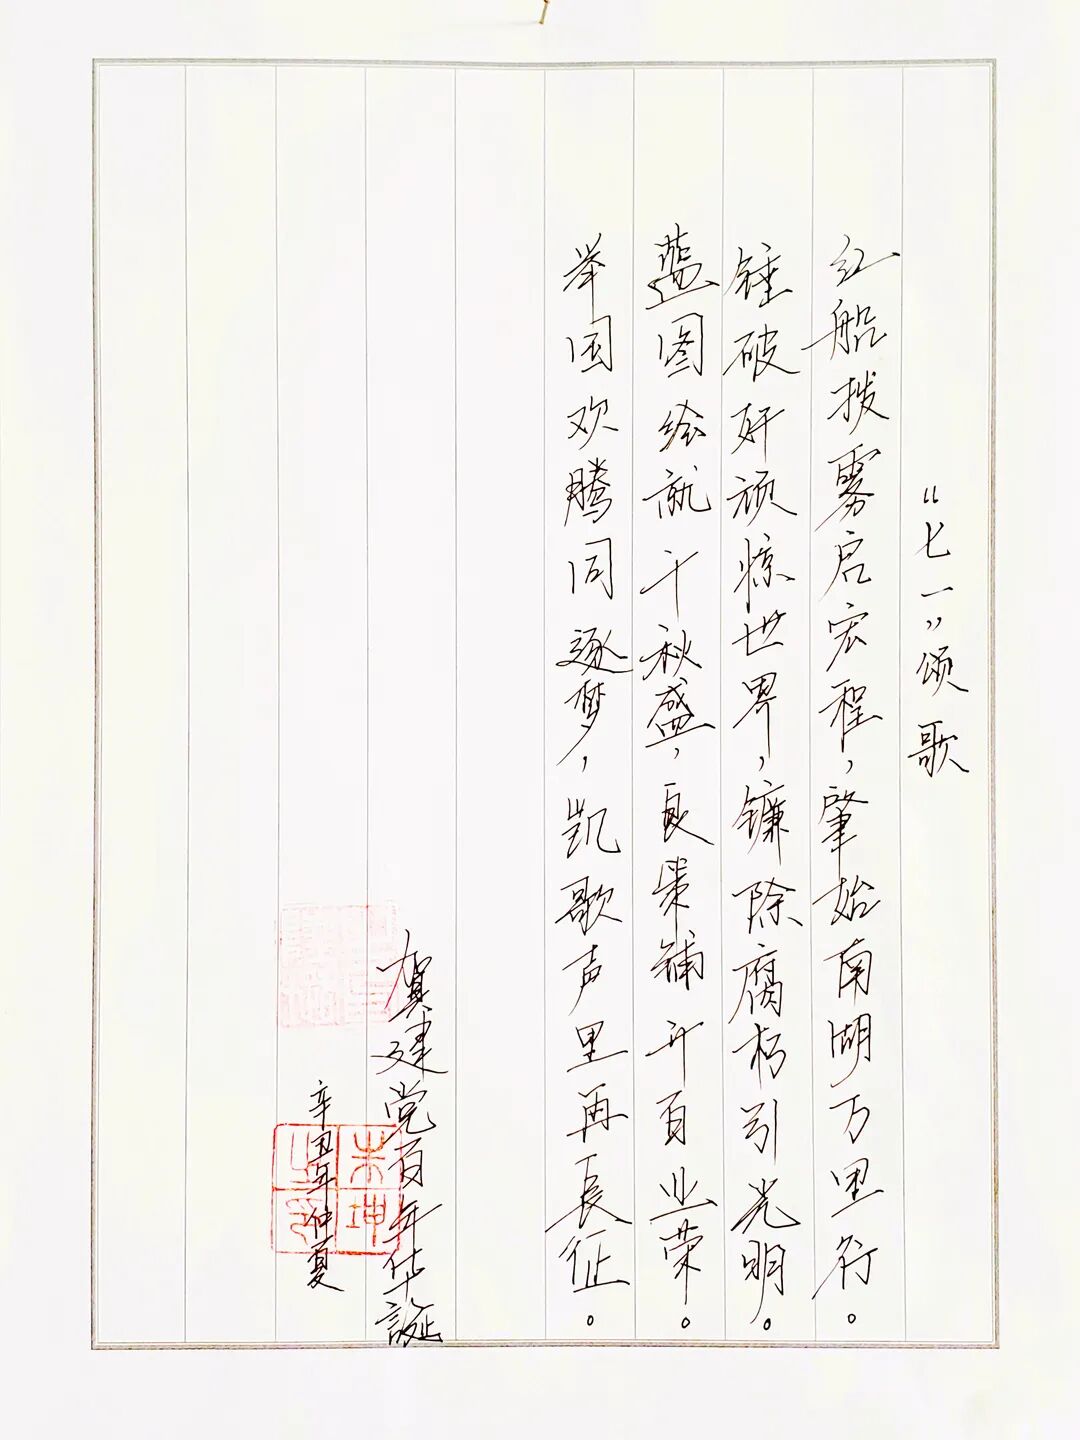 “七一”颂歌
红船拨雾启宏程，肇始南湖万里行。
锤破奸顽惊世界，镰除腐朽引光明。
蓝图绘就千秋盛，良策铺开百业荣。
举国欢腾同逐梦，凯歌声里再长征。
贺建党百年华誕
辛丑年仲夏